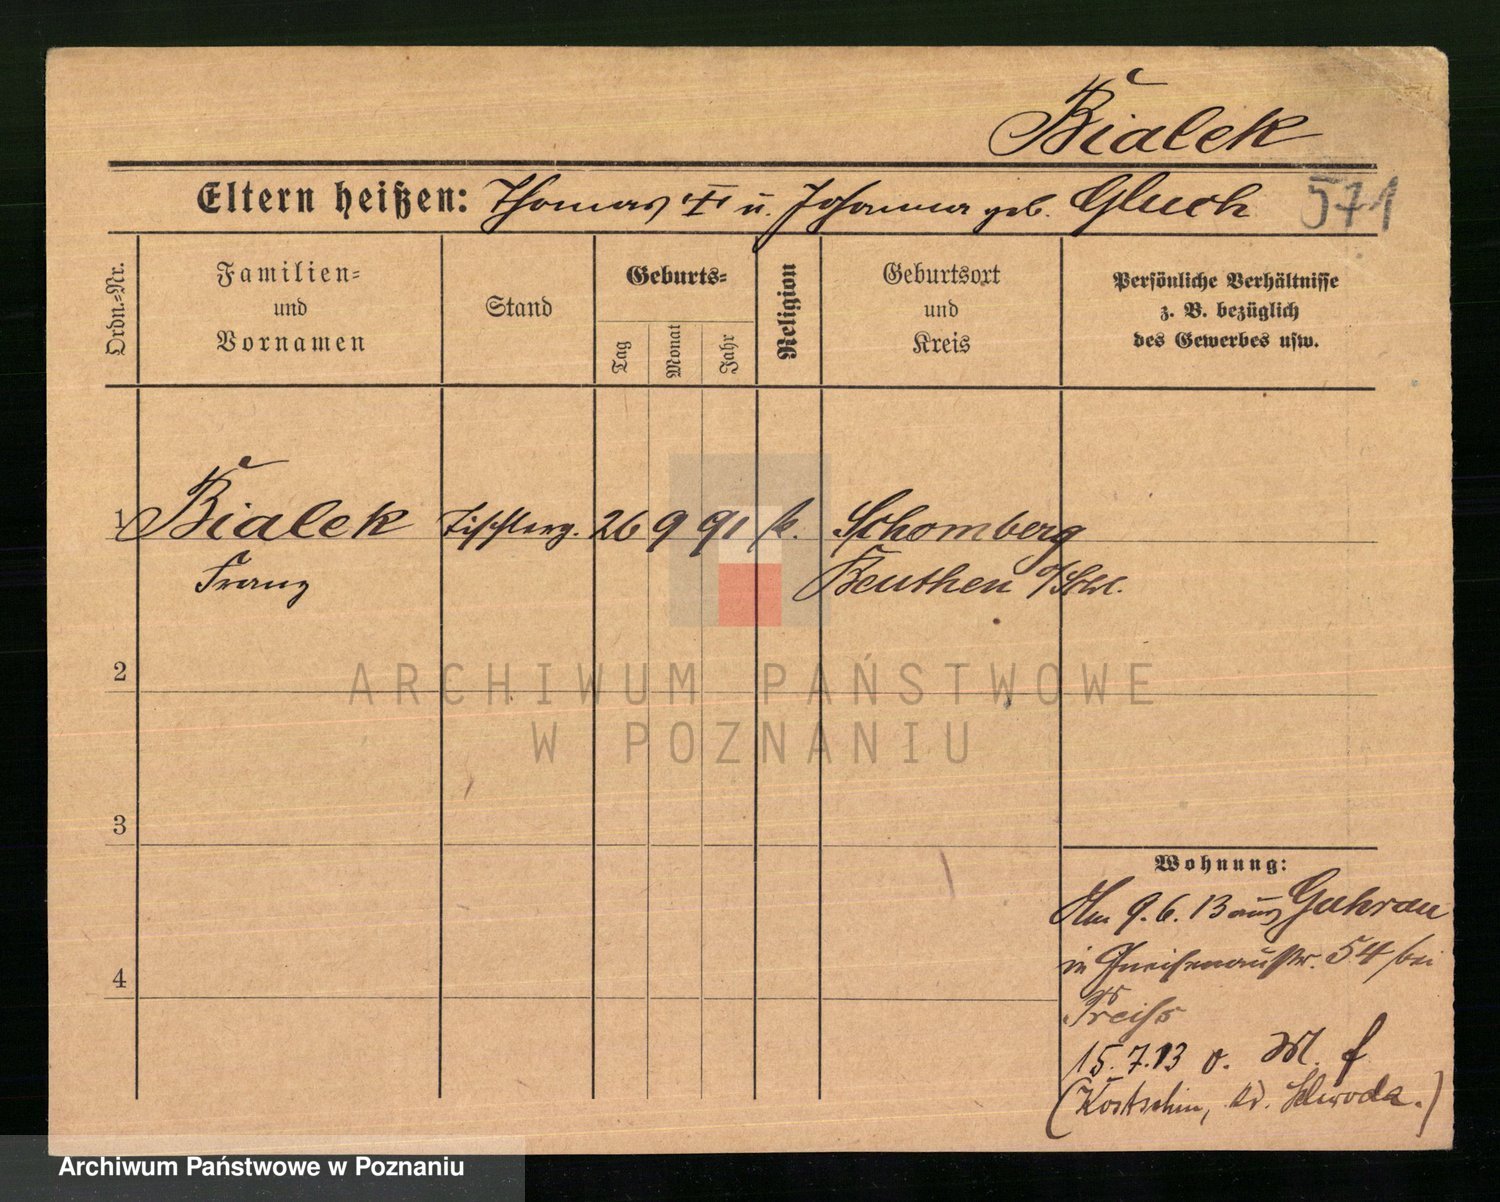 Bialek
Eltern heißen: Thomas u. Johanna geb. Gluch 571
Ordn.-Nr.
Familien-
und
Vornamen
Stand
Geburts-
Tag
Monat
Jahr
Religion
Geburtsort
und
Kreis
Persönliche Verhältnisse
z. B. bezüglich
des Gewerbes usw.
1 Bialek Tischlerg. 26 9 91 k. Schomberg
Franz Beuthen O/Schl.
2
3
4
Wohnung:
Am 9. 6. 13 aus Guhrau
in Gneisenaustr. 54 bei
Preiss
15. 7. 13 o. M. f
(Kostschin, Kr. Schroda.)
ARCHIWUM PAŃSTWOWE
W POZNANIU
Archiwum Państwowe w Poznaniu